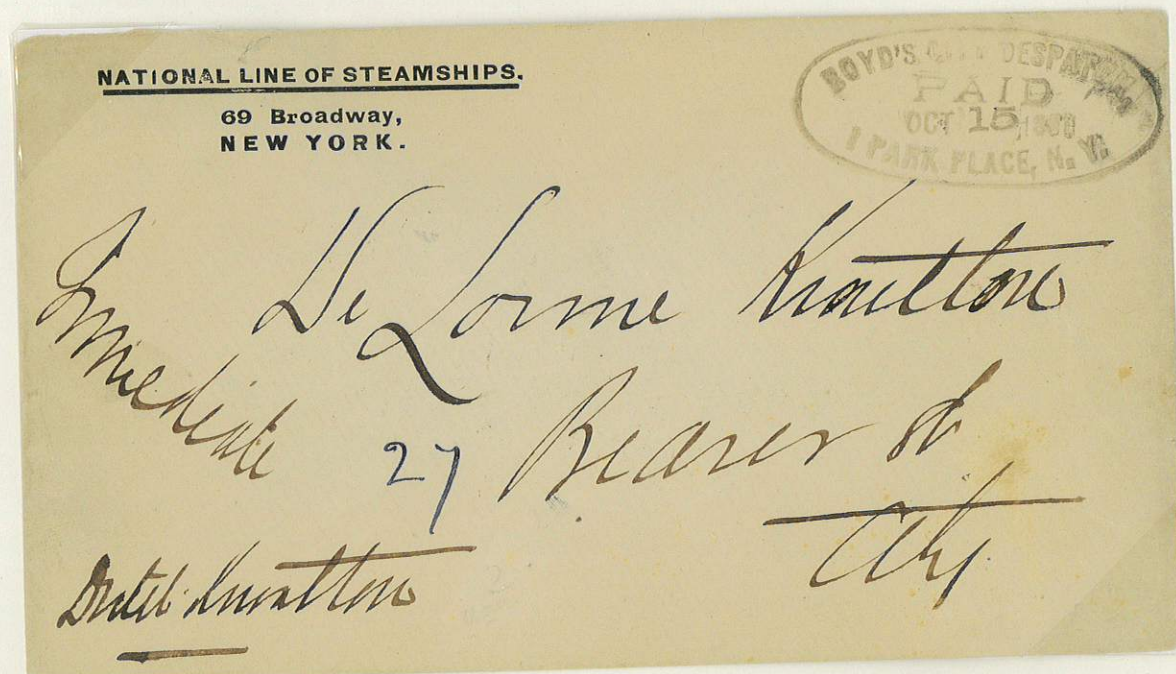 NATIONAL LINE OF STEAMSHIPS.
69 Broadway,
NEW YORK.
BOYD'S CITY DESPATCH
PAID
OCT 15
1 PARK PLACE, N. Y.
Immediate
De Lorme Knowlton
27 Beaver St
City
Knowlton